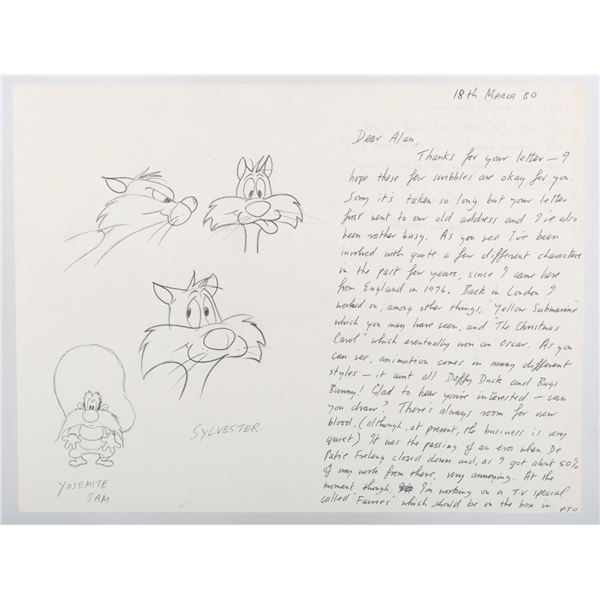 18th MARCH 80
Dear Alan,
Thanks for your letter – I
hope these few scribbles are okay for you.
Sorry it's taken so long but your letter
first went to our old address and I've also
been rather busy. As you see I've been
involved with quite a few different characters
in the past few years, since I came here
from England in 1976. Back in London I
worked on, among other things, "Yellow Submarine"
which you may have seen, and "The Christmas
Carol" which eventually won an Oscar. As you
can see, animation comes in many different
styles – it aint all Daffy Duck and Bugs
Bunny! Glad to hear you're interested – can
you draw? There's always room for new
blood. (although, at present, the business is very
quiet) It was the passing of an era when De
Patie Freleng closed down and, as I got about 50%
of my work from there, very annoying. At the
moment though, I'm working on a T.V special
called "Faeries" which should be on the box in
P.T.O
SYLVESTER
YOSEMITE
SAM